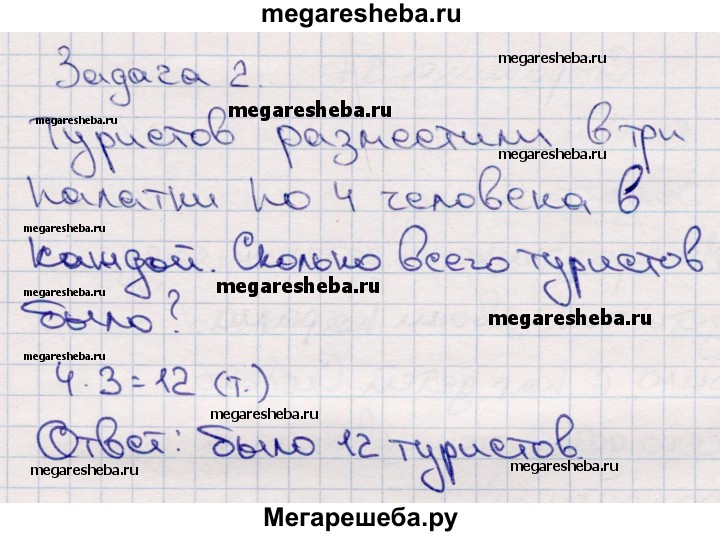 megaresheba.ru
Задача 2.
megaresheba.ru
megaresheba.ru
megaresheba.ru
Туристов разместили в три
megaresheba.ru
палатки по 4 человека в
megaresheba.ru
каждой. Сколько всего туристов
megaresheba.ru
было?
megaresheba.ru
megaresheba.ru
4·3=12 (т.)
megaresheba.ru
Ответ: было 12 туристов.
megaresheba.ru
megaresheba.ru
Мегарешеба.ру